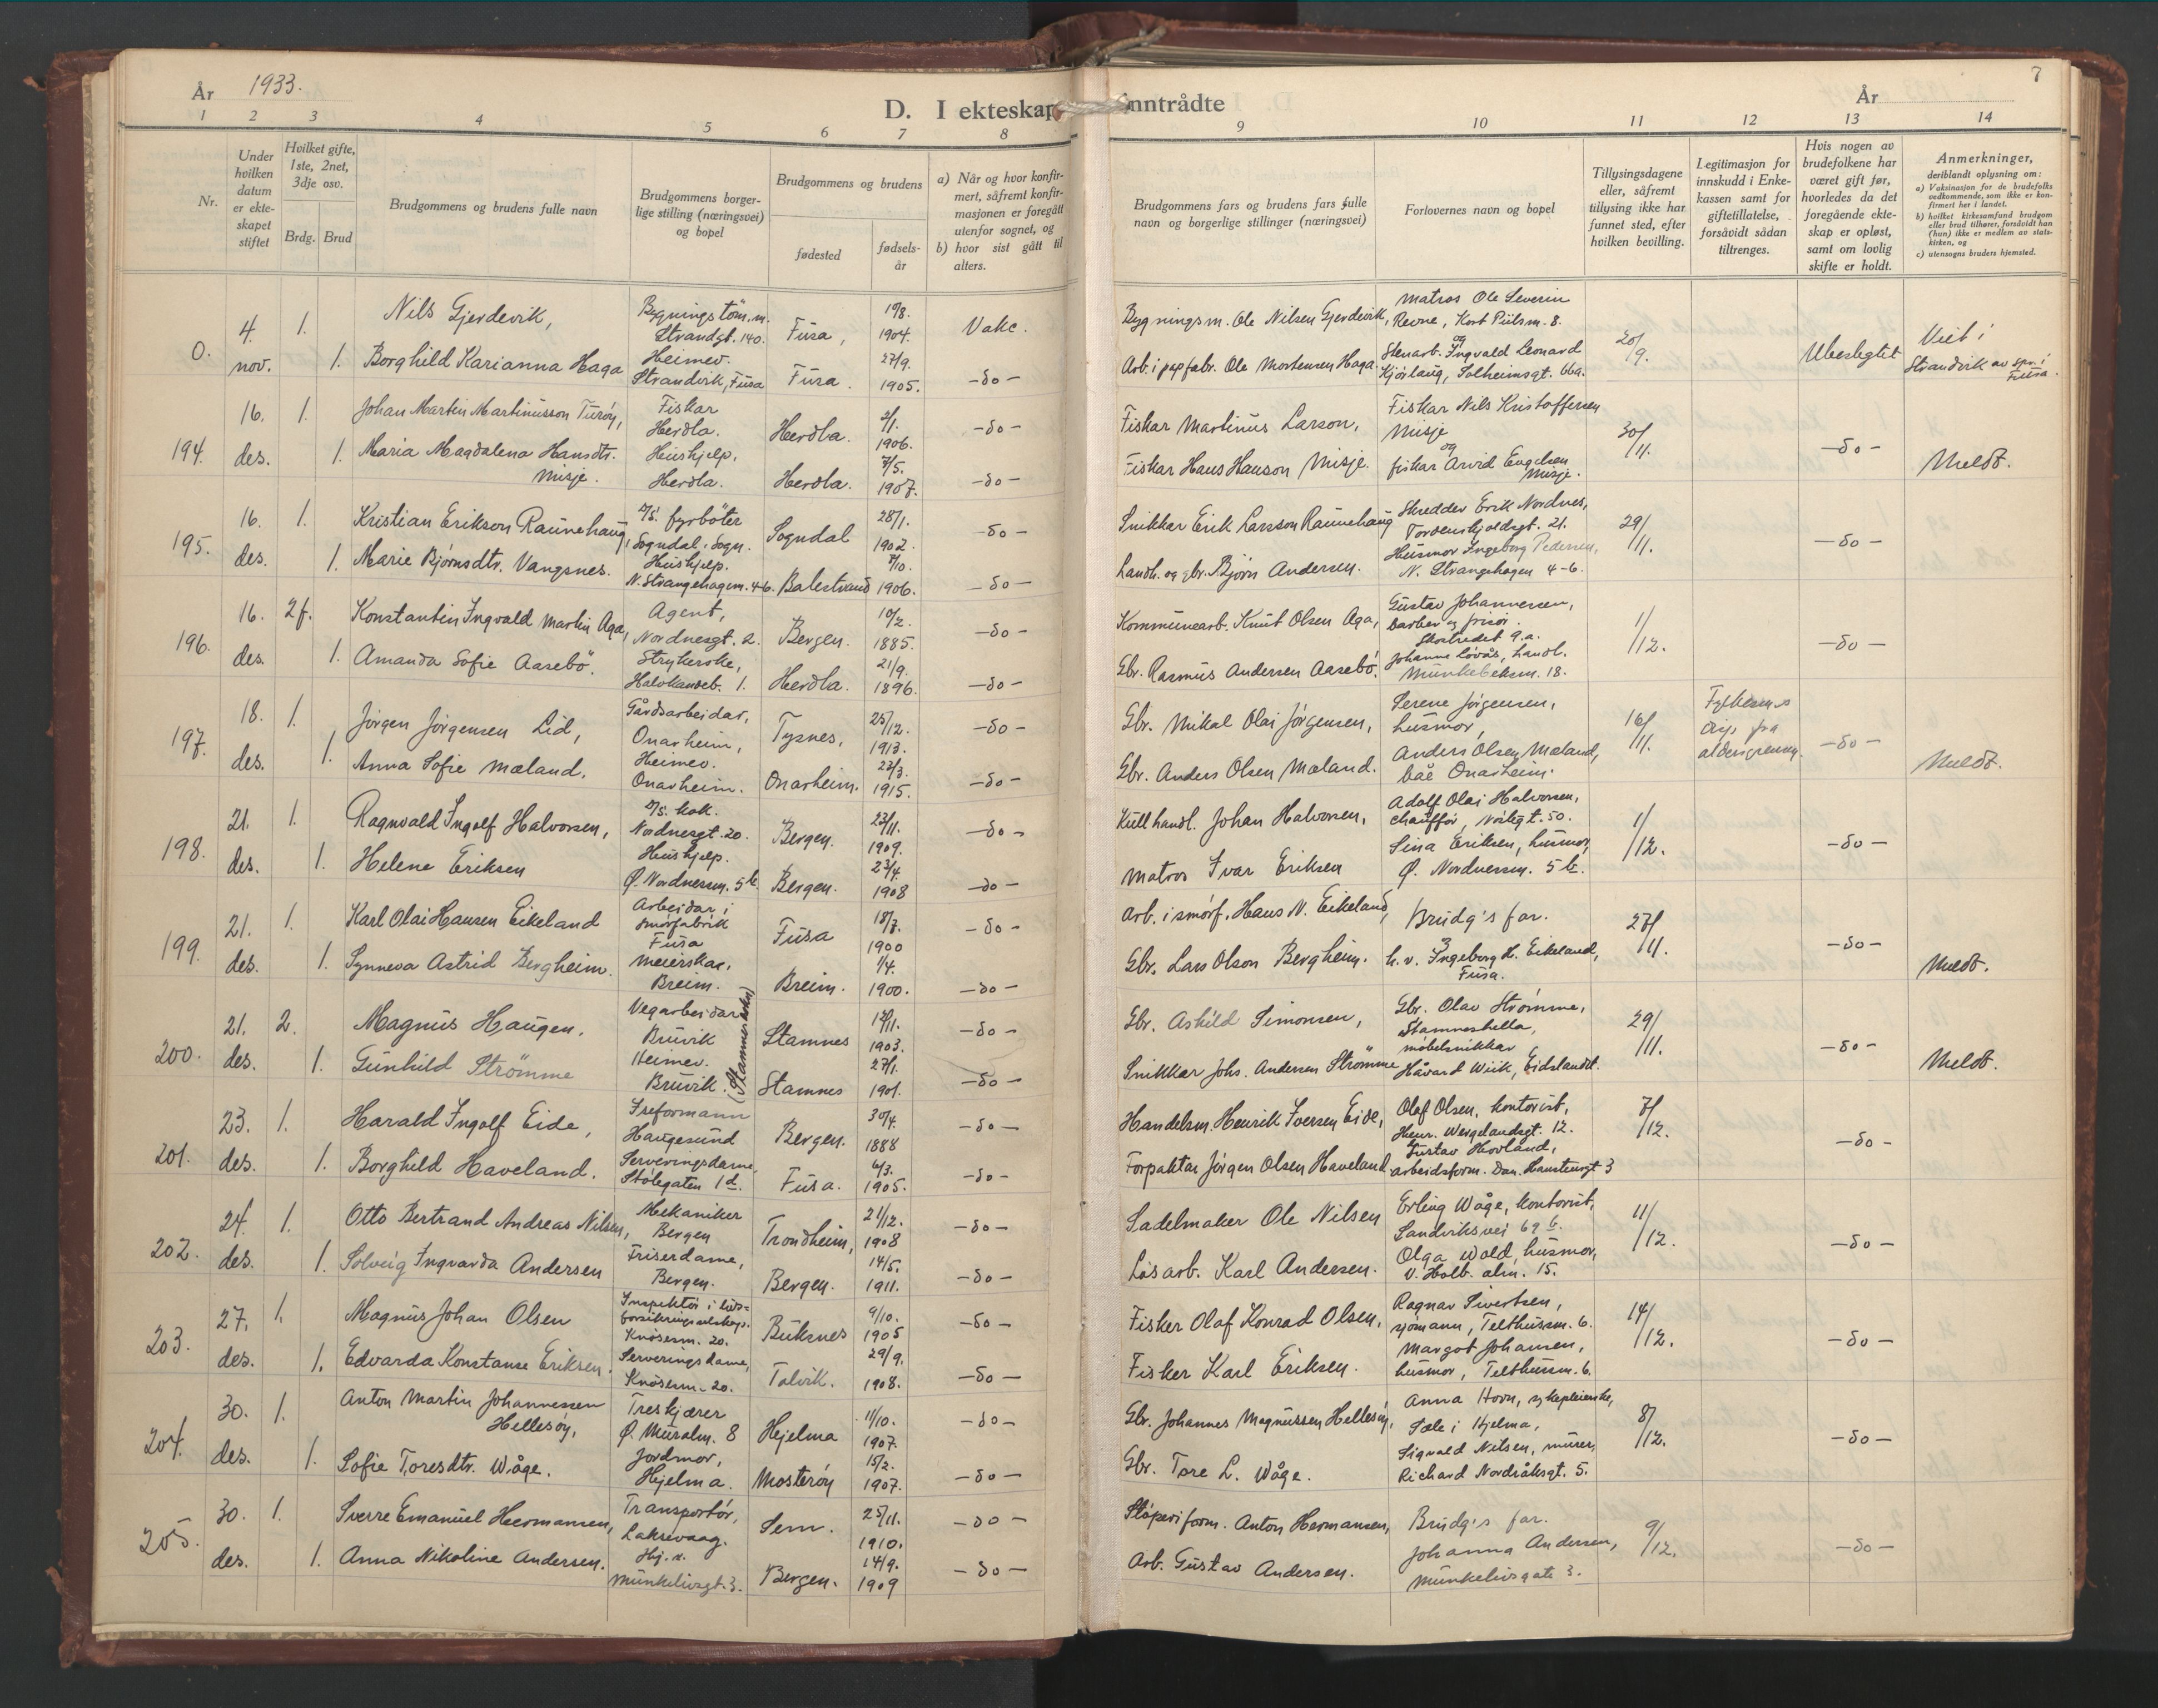 År 1933.
D. I ekteskap
inntrådte
År
7
1 2 3 4 5 6 7 8
9 10 11 12 13 14
Nr.
Under hvilken datum er ekteskapet stiftet
Hvilket gifte, 1ste, 2net, 3dje osv.
Brdg. Brud
Brudgommens og brudens fulle navn
Brudgommens borgerlige stilling (næringsvei) og bopel
Brudgommens og brudens
fødested
fødselsår
a) Når og hvor konfirmert, såfremt konfirmasjonen er foregått utenfor sognet, og
b) hvor sist gått til alters.
Brudgommens fars og brudens fars fulle navn og borgerlige stillinger (næringsvei)
Forlovernes navn og bopel
Tillysingsdagene eller, såfremt tillysing ikke har funnet sted, efter hvilken bevilling.
Legitimasjon for innskudd i Enkekassen samt for giftetillatelse, forsåvidt sådan tiltrenges.
Hvis nogen av brudefolkene har været gift før, hvorledes da det foregående ekteskap er opløst, samt om lovlig skifte er holdt.
Anmerkninger, deriblandt oplysning om:
a) Vaksinasjon for de brudefolks vedkommende, som ikke er konfirmert her i landet.
b) hvilket kirkesamfund brudgom eller brud tilhører, forsåvidt han (hun) ikke er medlem av statskirken, og
c) utensogns bruders hjemsted.
0. 4. nov. 1. Nils Gjerdevik, Bygningstöm.m. Strandgt. 140. Fusa, 10/8. 1904. Vakc.
1. Borghild Karianna Haga Heimev. Strandvik, Fusa Fusa. 27/9. 1905. -do-
Bygningsm. Ole Nilsen Gjerdevik, Matros Ole Severin Revne, Kort Piilsm. 8. 20/9. Ubeslegtet Viet i Strandvik av spr. i Fusa.
Arb. i papfabr. Ole Mortensen Haga. og Stenarb. Ingvald Leonard Kjørlaug, Solheimsgt. 66a.
194. 16. des. 1. Johan Martin Martinusson Turöy, Fiskar Herdla. Herdla. 2/1. 1906. -do-
1. Maria Magdalena Hansdtr. Misje. Hushjelp. Herdla. Herdla. 7/5. 1907. -do-
Fiskar Martinus Larson, Fiskar Nils Kristoffersen Misje 30/11. -do- Meldt.
Fiskar Hans Hanson Misje. og fiskar Arvid Engelsen Misje.
195. 16. des. 1. Kristian Erikson Raunehaug, D/S. fyrböter Sogndal i Sogn. Sogndal 28/1. 1902. -do-
1. Marie Bjørnsdtr. Vangsnes. Hushjelp. N. Strangehagen. 4-6. Balestrand 7/10. 1906. -do-
Snikkar Erik Larsson Raunehaug Skredder Erik Nordnes, Tordenskjoldsgt. 21. 29/11. -do-
Landh. og gbr. Bjørn Andersen. Husmor Ingeborg Pedersen, N. Strangehagen 4-6.
196. 16. des. 2f. Konstantin Ingvald Martin Aga, Agent, Nordnesgt. 2. Bergen. 10/2. 1885. -do-
1. Amanda Sofie Aasebö. Strykerske, Halvkandeb. 1. Herdla. 21/9. 1896. -do-
Kommunearb. Knut Olsen Aga, Gustav Johannesen, barber og frisör. Skostredet 9.a. 1/12. -do-
Gbr. Rasmus Andersen Aasebö. Johanne Lövås, handl. Munkebeksm. 18.
197. 18. des. 1. Jörgen Jörgensen Lid, Gårdsarbeidar, Onarheim, Tysnes, 25/12. 1913. -do-
1. Anna Sofie Mæland. Heimev. Onarheim. Onarheim. 22/3. 1915. -do-
Gbr. Mikal Olai Jörgensen, Serene Jörgensen, husmor, 16/11. Fylkesm.s disp. fra aldersgrensen. -do- Meldt.
Gbr. Anders Olsen Mæland. Anders Olsen Mæland, båe Onarheim.
198. 21. des. 1. Ragnvald Ingolf Halvorsen, D/S. kok. Nordnesgt. 20. Bergen. 23/11. 1909. -do-
1. Helene Eriksen Hushjelp. Ø. Nordnessm. 5 b. Bergen. 23/4. 1908 -do-
Kullhandl. Johan Halvorsen, Adolf Olai Halvorsen, chauffør, Nöstegt. 50. 1/12. -do-
Matros Ivar Eriksen Sina Eriksen, husmor, Ø. Nordnessm. 5 b.
199. 21. des. 1. Karl Olai Hansen Eikeland Arbeidar i smörfabrik Fusa Fusa 18/7. 1900 -do-
1. Synneva Astrid Bergheim. Meierskac. Breim. Breim. 1/4. 1900. -do-
Arb. i smörf. Hans N. Eikeland, Brudg's far. 27/11. -do- Meldt.
Gbr. Lars Olson Bergheim. h. v. Ingeborg H. Eikeland, Fusa.
200. 21. des. 2. Magnus Haugen. Vegarbeidar Bruvik Stamnes 12/11. 1903. -do-
1. Gunhild Strömme Heimev. Bruvik. (Stamneshella) Stamnes 27/1. 1901. -do-
Gbr. Askild Simonsen, Gbr. Olav Strömme, Stamneshella, 29/11. -do- Meldt.
Snikkar Johs. Andersen Strömme möbelsnikkar Håvard Wiik, Eidslandet.
201. 23. des. 1. Harald Ingolf Eide, Iseformann Haugesund Bergen. 30/4. 1888 -do-
1. Borghild Haveland. Serveringsdame, Stölegaten 1 d. Fusa. 6/3. 1905. -do-
Handelsm. Henrik Iversen Eide, Olaf Olsen, kontorist, Henr. Wergelandsgt. 12. 7/12. -do-
Forpaktar Jörgen Olsen Haveland, Gustav Hovland, arbeidsform. Dan. Hanstensgt 3
202. 24. des. 1. Otto Bertrand Andreas Nilsen, Mekaniker Bergen Trondheim, 21/12. 1908 -do-
1. Solveig Ingvarda Andersen Friserdame, Bergen. Bergen. 14/5. 1911. -do-
Sadelmaker Ole Nilsen Erling Wåge, kontorist, Sandviksvei 69 b. 11/12. -do-
Løsarb. Karl Andersen. Olga Wold, husmor, V. Holb. alm. 15.
203. 27. des. 1. Magnus Johan Olsen Inspektör i livsforsikringsselskap. Knösesm. 20. Buksnes 9/10. 1905 -do-
1. Edvarda Konstanse Eriksen. Serveringsdame, Knösesm. 20. Talvik. 29/9. 1908. -do-
Fisker Olaf Konrad Olsen, Ragnar Sivertsen, sjömann, Telthussm. 6. 14/12. -do-
Fisker Karl Eriksen. Margot Johansen, husmor, Telthussm. 6.
204. 30. des. 1. Anton Martin Johannessen Hellesöy, Treskjærer Ø. Muralm. 8 Hjelma 11/10. 1907. -do-
1. Sofie Toresdtr. Wåge. Jordmor, Hjelma. Mosteröy 15/2. 1907. -do-
Gbr. Johannes Magnussen Hellesöy, Anna Hovn, sykepleierske, Sæle i Hjelma, 8/12. -do-
Gbr. Tore L. Wåge. Sigvald Nilsen, murer, Richard Nordråksgt. 5.
205. 30. des. 1. Sverre Emanuel Hermansen, Transportör, Laksevaag. Sem. 25/11. 1910. -do-
1. Anna Nikoline Andersen. Hj. v. Munkelivsgt. 3. Bergen. 14/9. 1909 -do-
Stöperiform. Anton Hermansen, Brudg's far. 9/12. -do-
Arb. Gustav Andersen. Johanna Andersen, Munkelivsgate 3.